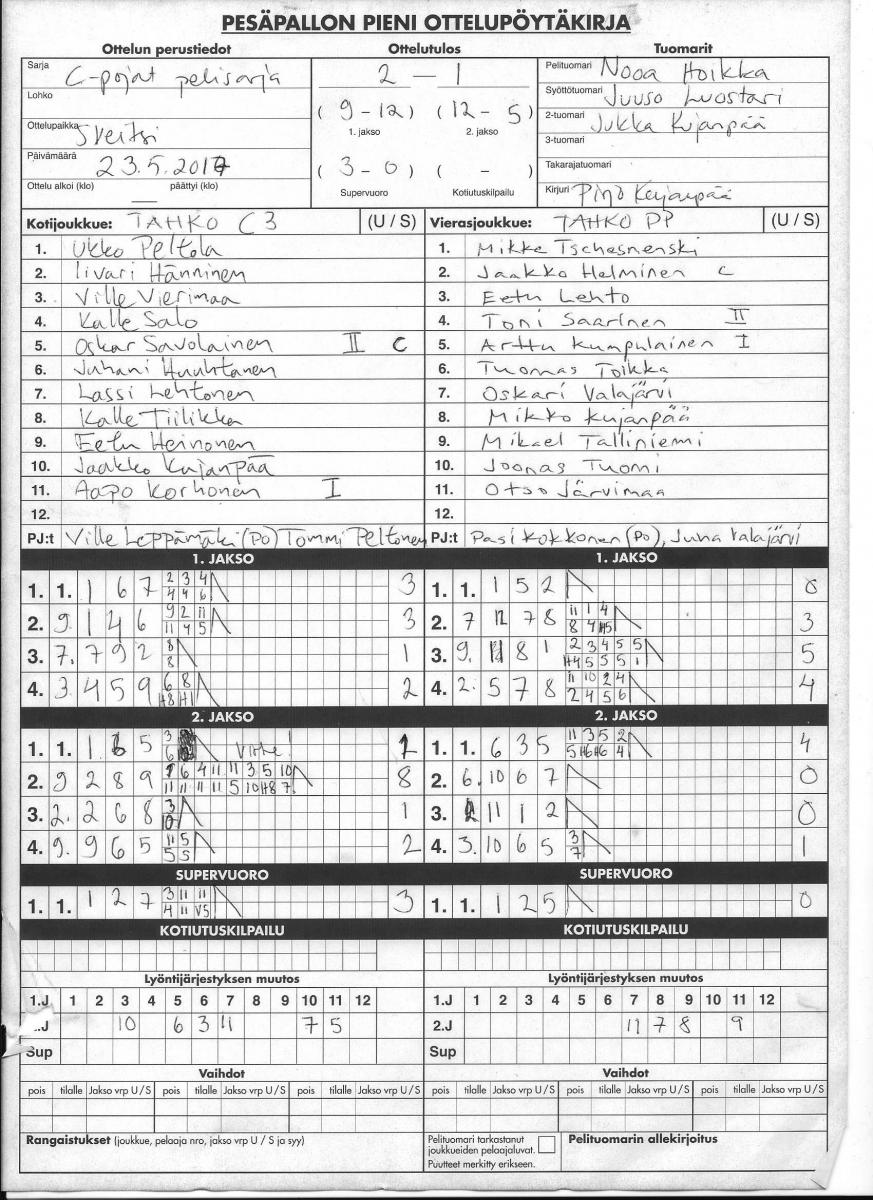 PESÄPALLON PIENI OTTELUPÖYTÄKIRJA
Ottelun perustiedot
Ottelutulos
Tuomarit
Sarja C-pojat pelisarja
Lohko
Ottelupaikka Sveitsi
Päivämäärä 23.5.2017
Ottelu alkoi (klo) päättyi (klo)
2 – 1
(9-12) (12-5)
1. jakso 2. jakso
(3-0) ( - )
Supervuoro Kotiutuskilpailu
Pelituomari Nooa Hoikka
Syöttötuomari Juuso Luostari
2-tuomari Jukka Kujanpää
3-tuomari
Takarajatuomari
Kirjuri Pirjo Kujanpää
Kotijoukkue: TAHKO C3 (U / S)
1. Ukko Peltola
2. Iivari Hänninen
3. Ville Vierimaa
4. Kalle Salo
5. Oskar Savolainen II C
6. Juhani Huuhtanen
7. Lassi Lehtonen
8. Kalle Tiilikka
9. Eetu Heinonen
10. Jaakko Kujanpää
11. Aapo Korhonen I
12.
PJ:t Ville Leppämäki (PO) Tommi Peltonen
Vierasjoukkue: TAHKO PP (U / S)
1. Mikke Tschesnenski
2. Jaakko Helminen C
3. Eetu Lehto
4. Toni Saarinen II
5. Arttu Kumpulainen I
6. Tuomas Toikka
7. Oskari Valajärvi
8. Mikko Kujanpää
9. Mikael Talliniemi
10. Joonas Tuomi
11. Otso Järvimaa
12.
PJ:t Pasi Kokkonen (PO), Juha Valajärvi
1. JAKSO
1. 1. 1 6 7 2 3 4 3
4 4 6
2. 9. 1 4 6 9 2 11 3
11 4 5
3. 7. 7 9 2 8 1
8
4. 3. 4 5 9 6 8 2
H8 H1
1. JAKSO
1. 1. 1 5 2 0
2. 7 12 7 8 11 1 4 3
8 4 H5
3. 9. 11 8 1 2 3 4 5 5 5
H4 5 5 5 1
4. 2. 5 7 8 11 10 2 4 4
2 4 5 6
2. JAKSO
1. 1. 1 6 5 3 Virhe! 1
6
2. 9 2 8 9 1 6 4 11 11 3 5 10 8
11 11 11 11 5 10 H8 7
3. 2. 2 6 8 3 1
10
4. 9. 9 6 5 11 5 2
5 5
2. JAKSO
1. 1. 6 3 5 11 3 5 2 4
5 H6 H6 4
2. 6. 10 6 7 0
3. 2 11 1 2 0
4. 3. 10 6 5 3 1
7
SUPERVUORO
1. 1. 1 2 7 3 11 11 3
4 11 V5
SUPERVUORO
1. 1. 1 2 5 0
KOTIUTUSKILPAILU
KOTIUTUSKILPAILU
Lyöntijärjestyksen muutos
1.J 1 2 3 4 5 6 7 8 9 10 11 12
.J 10 6 3 11 7 5
Sup
Lyöntijärjestyksen muutos
1.J 1 2 3 4 5 6 7 8 9 10 11 12
2.J 11 7 8 9
Sup
Vaihdot
pois tilalle Jakso vrp U / S pois tilalle Jakso vrp U / S pois tilalle Jakso vrp U / S
Vaihdot
pois tilalle Jakso vrp U / S pois tilalle Jakso vrp U / S pois tilalle Jakso vrp U / S
Rangaistukset (joukkue, pelaaja nro, jakso vrp U / S ja syy)
Pelituomari tarkastanut
joukkueiden pelaajaluvat.
Puutteet merkitty erikseen.
Pelituomarin allekirjoitus